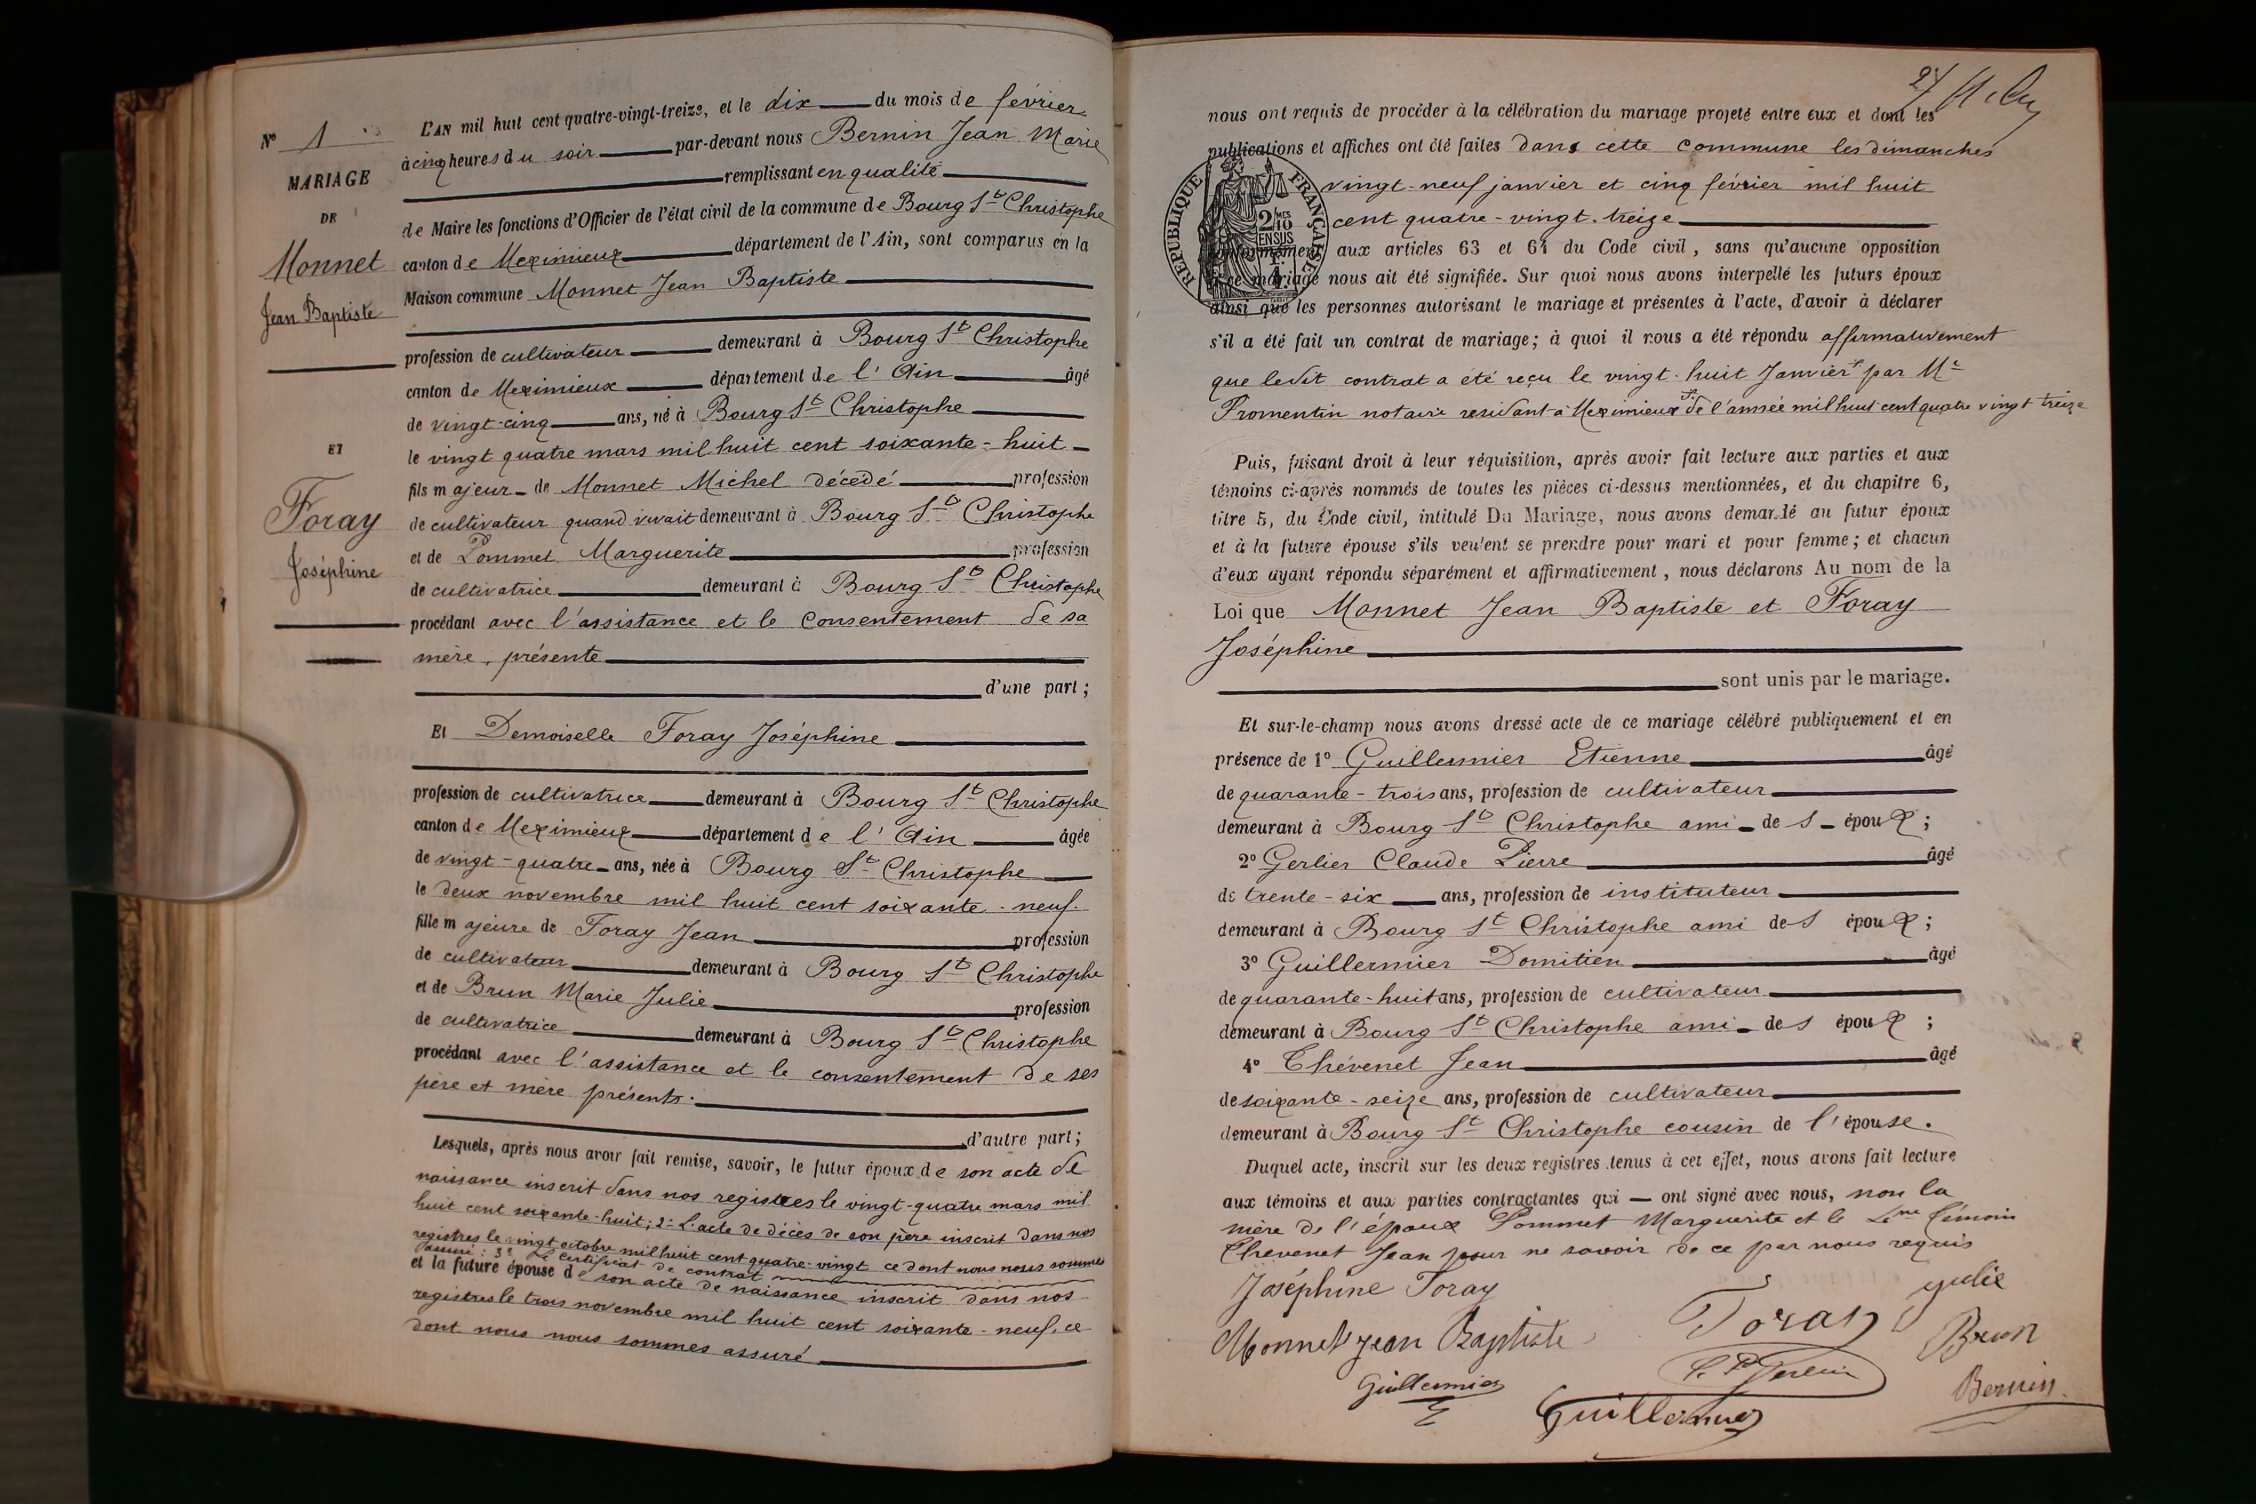 N° 1
MARIAGE
DE
Monnet
Jean Baptiste
ET
Foray
Joséphine
L'AN mil huit cent quatre-vingt-treize, et le dix du mois de février
à cinq heures du soir par-devant nous Bernin Jean Marie
remplissant en qualité
de Maire les fonctions d'Officier de l'état civil de la commune de Bourg St Christophe
canton de Meximieux département de l'Ain, sont comparus en la
Maison commune Monnet Jean Baptiste
profession de cultivateur demeurant à Bourg St Christophe
canton de Meximieux département de l'Ain âgé
de vingt-cinq ans, né à Bourg St Christophe
le vingt quatre mars mil huit cent soixante-huit
fils majeur de Monnet Michel décédé profession
de cultivateur quand vivait demeurant à Bourg St Christophe
et de Pommet Marguerite profession
de cultivatrice demeurant à Bourg St Christophe
procédant avec l'assistance et le consentement de sa
mère, présente
d'une part;
Et Demoiselle Foray Joséphine
profession de cultivatrice demeurant à Bourg St Christophe
canton de Meximieux département de l'Ain âgée
de vingt-quatre ans, née à Bourg St Christophe
le deux novembre mil huit cent soixante-neuf.
fille majeure de Foray Jean profession
de cultivateur demeurant à Bourg St Christophe
et de Brun Marie Julie profession
de cultivatrice demeurant à Bourg St Christophe
procédant avec l'assistance et le consentement de ses
père et mère présents.
d'autre part;
Lesquels, après nous avoir fait remise, savoir, le futur époux de son acte de
naissance inscrit dans nos registres le vingt-quatre mars mil
huit cent soixante-huit; 2° L'acte de décès de son père inscrit dans nos
registres le vingt octobre mil huit cent quatre-vingt ce dont nous nous sommes
assuré: 3° Le certificat de contrat
et la future épouse de son acte de naissance inscrit dans nos
registres le trois novembre mil huit cent soixante-neuf, ce
dont nous nous sommes assuré
24
nous ont requis de procéder à la célébration du mariage projeté entre eux et dont les
publications et affiches ont été faites dans cette commune les dimanches
vingt-neuf janvier et cinq février mil huit
cent quatre-vingt-treize
conformément aux articles 63 et 64 du Code civil, sans qu'aucune opposition
à ce mariage nous ait été signifiée. Sur quoi nous avons interpellé les futurs époux
ainsi que les personnes autorisant le mariage et présentes à l'acte, d'avoir à déclarer
s'il a été fait un contrat de mariage; à quoi il nous a été répondu affirmativement
que ledit contrat a été reçu le vingt-huit Janvier par Me
Promentin notaire residant à Meximieux de l'année mil huit cent quatre vingt treize
RÉPUBLIQUE FRANÇAISE
2/10MES
EN SUS
Puis, faisant droit à leur réquisition, après avoir fait lecture aux parties et aux
témoins ci-après nommés de toutes les pièces ci-dessus mentionnées, et du chapitre 6,
titre 5, du Code civil, intitulé Du Mariage, nous avons demandé au futur époux
et à la future épouse s'ils veulent se prendre pour mari et pour femme; et chacun
d'eux ayant répondu séparément et affirmativement, nous déclarons Au nom de la
Loi que Monnet Jean Baptiste et Foray
Joséphine
sont unis par le mariage.
Et sur-le-champ nous avons dressé acte de ce mariage célébré publiquement et en
présence de 1° Guillermier Etienne âgé
de quarante-trois ans, profession de cultivateur
demeurant à Bourg St Christophe ami des époux;
2° Gerlier Claude Pierre âgé
de trente-six ans, profession de instituteur
demeurant à Bourg St Christophe ami des époux;
3° Guillermier Domitien âgé
de quarante-huit ans, profession de cultivateur
demeurant à Bourg St Christophe ami des époux;
4° Thévenet Jean âgé
de soixante-seize ans, profession de cultivateur
demeurant à Bourg St Christophe cousin de l'épouse.
Duquel acte, inscrit sur les deux registres tenus à cet effet, nous avons fait lecture
aux témoins et aux parties contractantes qui ont signé avec nous, non la
mère de l'époux Pommet Marguerite et le 4me témoin
Thevenet Jean pour ne savoir de ce par nous requis
Joséphine Foray
Foray
julie
Brun
Monnet jean Baptiste
C. P. Gerlier
Guillermier
E
Guillermier
Bernin